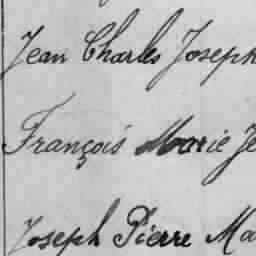 Jean Charles Joseph
François Marie Je
Joseph Pierre Ma